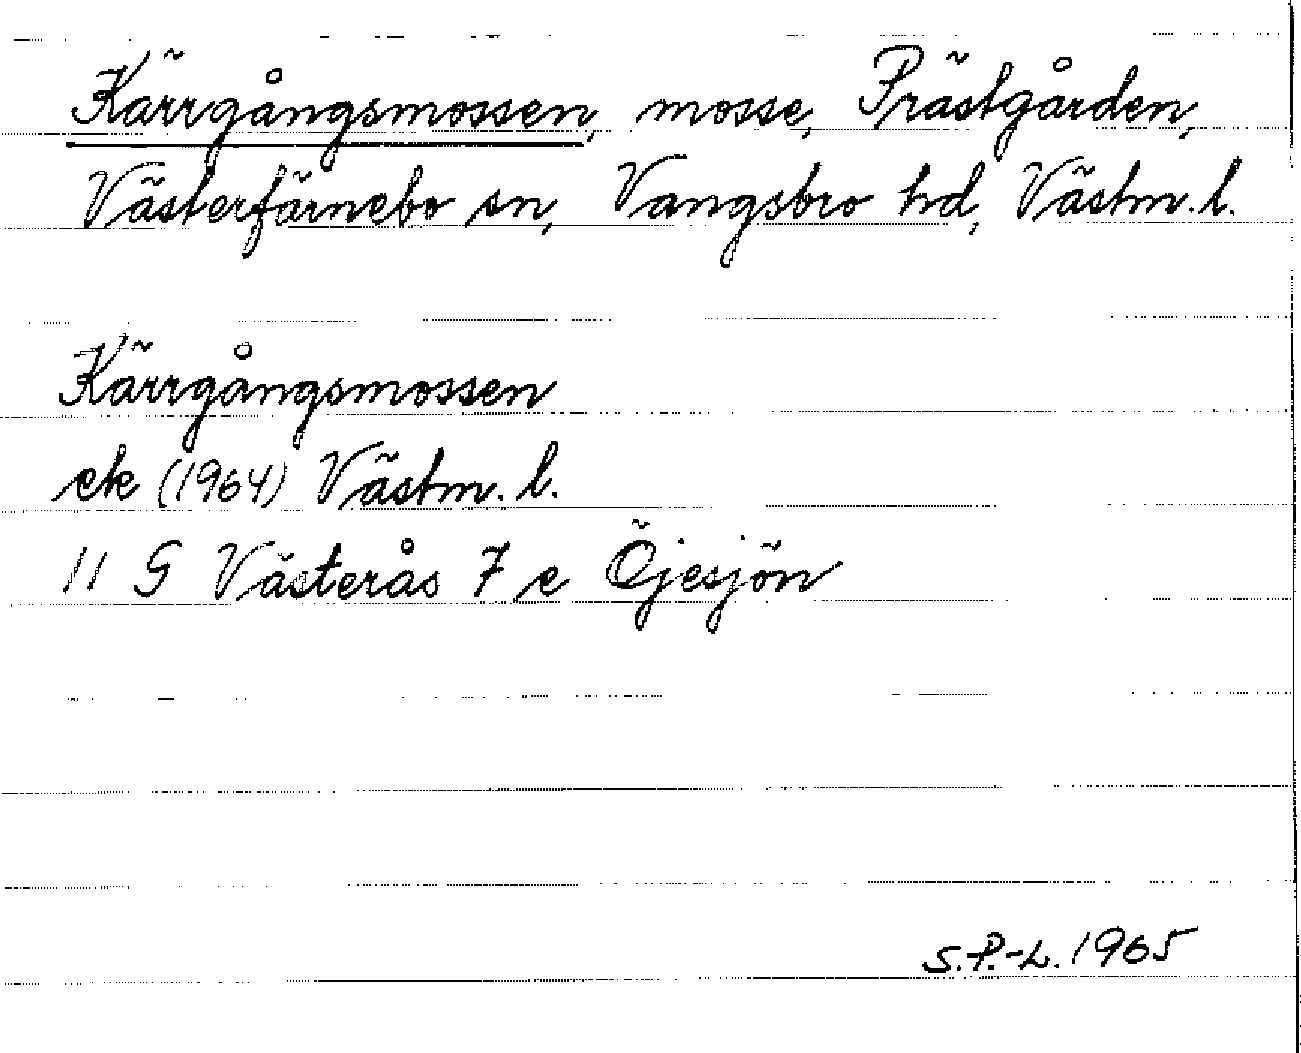 Kärrgångsmossen, mosse, Prästgården,
Västerfärnebo sn, Vangsbro hd, Västm. l.
Kärrgångsmossen
ek (1964) Västm. l.
11 G Västerås 7 e Öjesjön
S.P.-L. 1965